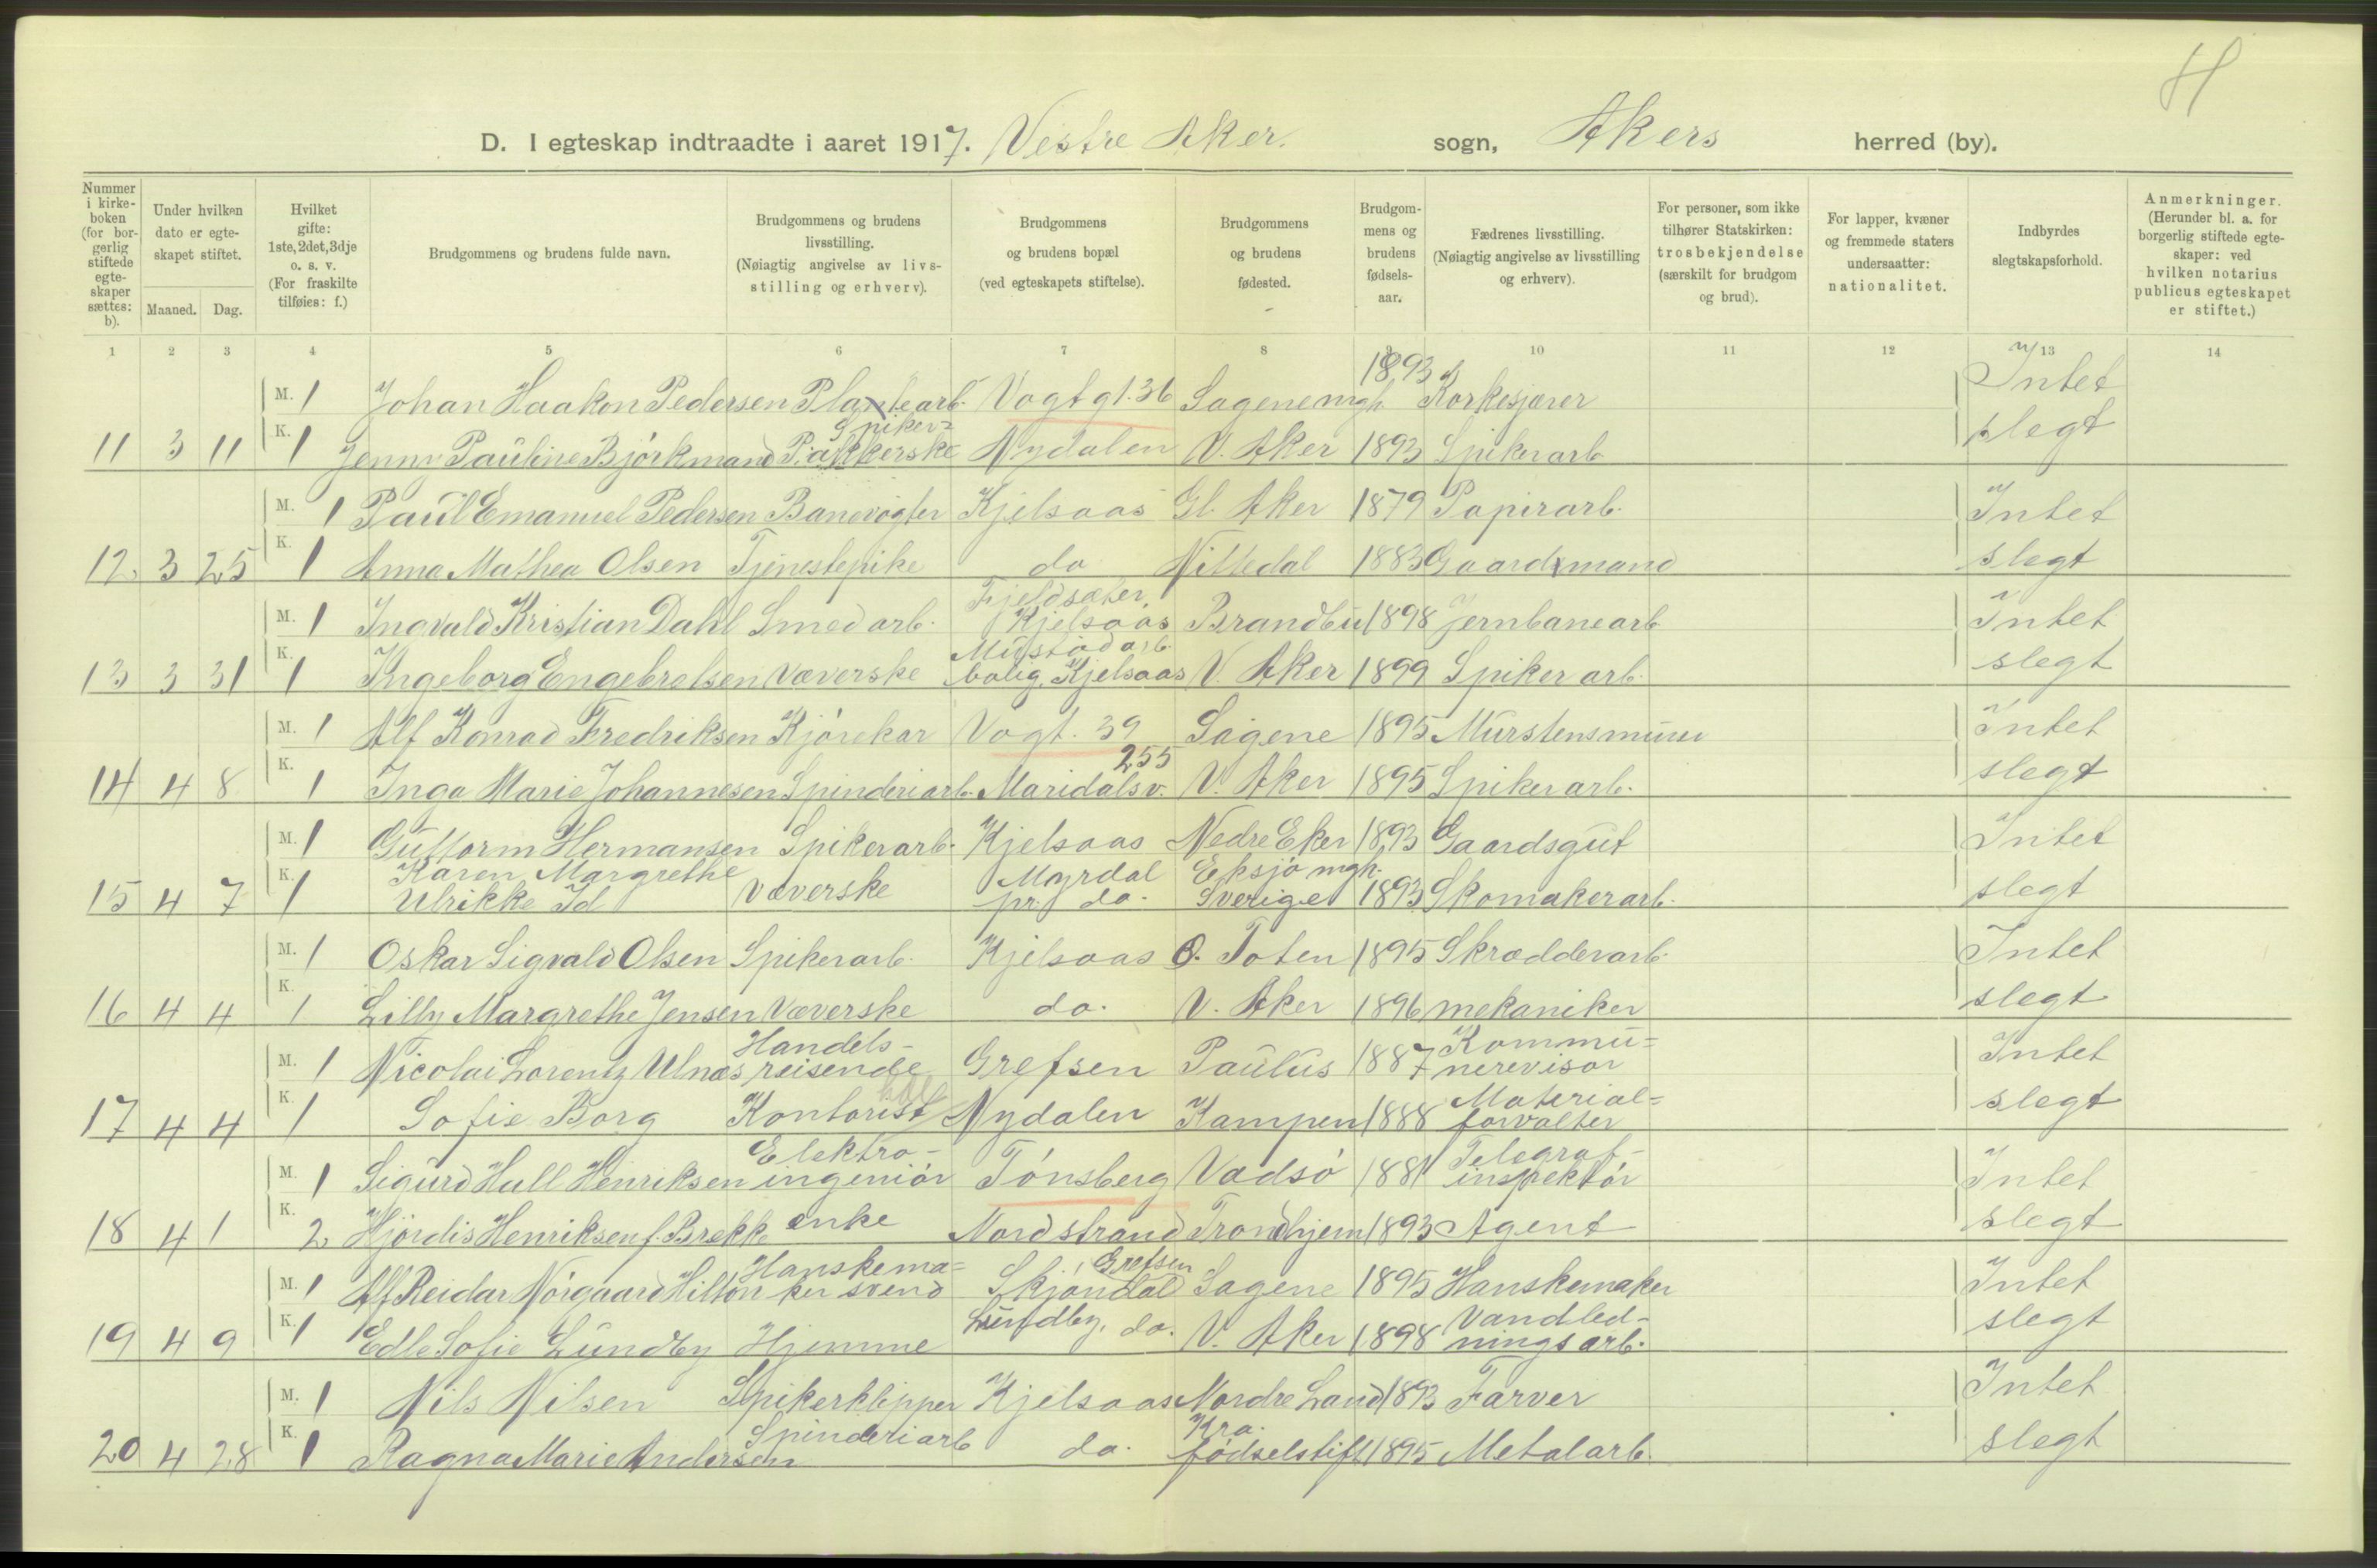 H
D. I egteskap indtraadte i aaret 1917. Vestre Aker. sogn, Akers herred (by).
Nummer i kirke-boken (for bor-gerlig stiftede egte-skaper sættes: b).
Under hvilken dato er egte-skapet stiftet.
Maaned. Dag.
Hvilket gifte: 1ste, 2det, 3dje o. s. v. (For fraskilte tilføies: f.)
Brudgommens og brudens fulde navn.
Brudgommens og brudens livsstilling. (Nøiagtig angivelse av livs-stilling og erhverv).
Brudgommens og brudens bopæl (ved egteskapets stiftelse).
Brudgommens og brudens fødested.
Brudgom-mens og brudens fødsels-aar.
Fædrenes livsstilling. (Nøiagtig angivelse av livsstilling og erhverv).
For personer, som ikke tilhører Statskirken: trosbekjendelse (særskilt for brudgom og brud).
For lapper, kvæner og fremmede staters undersaatter: nationalitet.
Indbyrdes slegtskapsforhold.
Anmerkninger. (Herunder bl. a. for borgerlig stiftede egte-skaper: ved hvilken notarius publicus egteskapet er stiftet.)
1 2 3 4 5 6 7 8 9 10 11 12 13 14
M. 1 Johan Haakon Pedersen Platearb. Vogtgt. 36 Sagene mgh 1893 Korkskjærer Intet
11 3 11 K. 1 Jenny Pauline Bjørkmand Spiker= Pakkerske Nydalen V. Aker 1893 Spikerarb slegt
M. 1 Paul Emanuel Pedersen Banevogter Kjelsaas Gl. Aker 1879 Papirarb. Intet
12 3 25 K. 1 Anna Mathea Olsen Tjenestepike do Nittedal 1883 Gaardmand slegt
M. 1 Ingvald Kristian Dahl Smedarb. Fjeldsæter, Kjelsaas Brandbu 1898 Jernbanearb Intet
13 3 31 K. 1 Ingeborg Engebretsen Væverske Mustadarb. bolig. Kjelsaas V. Aker 1899 Spikerarb. slegt
M. 1 Alf Konrad Fredriksen Kjørekar Vogt. 39 Sagene 1895 Murstensmurer Intet
14 4 8 K. 1 Inga Marie Johannesen Spinderiarb. Maridalsv. 255 V. Aker 1895 Spikerarb. slegt
M. 1 Guttorm Hermansen Spikerarb. Kjelsaas Nedre Eker 1893 Gaardsgut Intet
15 4 7 K. 1 Karen Margrethe Ulrikke Id Væverske Myrdal pr. do. Eksjø mgh. Sverige 1893 Skomakerarb. slegt
M. 1 Oskar Sigvald Olsen Spikerarb. Kjelsaas Ø. Toten 1895 Skrædderarb. Intet
16 4 4 K. 1 Lilly Margrethe Jensen Væverske do. V. Aker 1896 mekaniker slegt
M. 1 Nicolai Lorentz Ulnæs Handels-reisende Grefsen Paulus 1887 Kommu=nerevisor Intet
17 4 4 K. 1 Sofie Borg Kontorist Nydalen Kampen 1888 Material=forvalter slegt
M. 1 Sigurd Hull Henriksen Elektro-ingeniør Tønsberg Vadsø 1881 Telegraf-inspektør Intet
18 4 1 K. 2 Hjørdis Henriksen f. Brekke enke Nordstrand Trondhjem 1893 Agent slegt
M. 1 Alf Reidar Nørgaard Hilton Hanskema=ker svend Skjøndal Grefsen Sagene 1895 Hanskemaker Intet
19 4 9 K. 1 Edle Sofie Lundby Hjemme Lundby, do. V. Aker 1898 Vandled-ningsarb. slegt
M. 1 Nils Nilsen Spikerklipper Kjelsaas Nordre Land 1893 Farver Intet
20 4 28 K. 1 Ragna Marie Andersen Spinderiarb do. Kra. fødselstift 1895 Metalarb. slegt